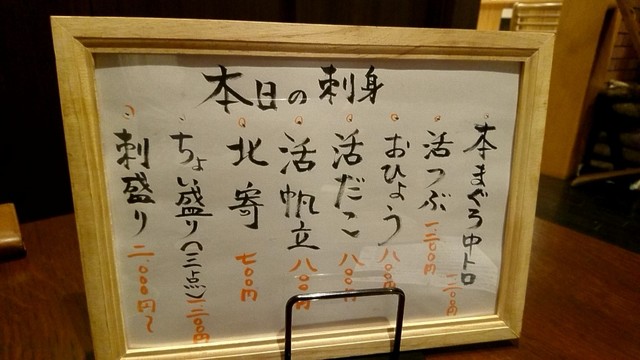 本日の刺身
本まぐろ中トロ 一二〇〇円
活つぶ 一、二〇〇円
おひょう 八〇〇円
活だこ 八〇〇円
活帆立 八〇〇円
北寄 七〇〇円
ちょい盛り(三点) 一二〇〇円
刺盛り 二、〇〇〇円〜